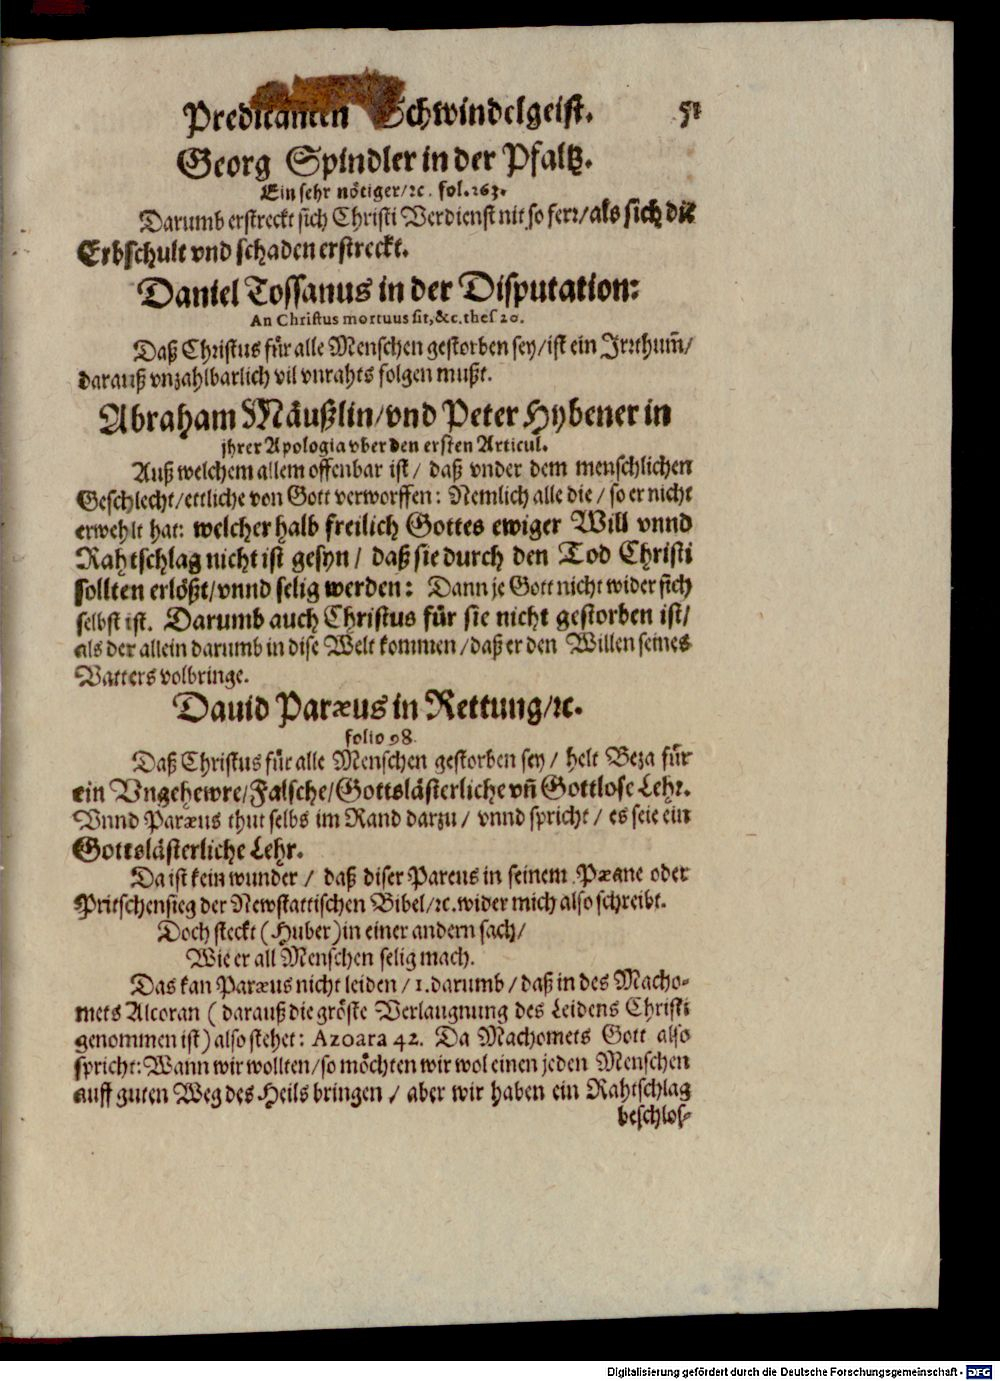 Predicanten Schwindelgeist. 51
Georg Spindler in der Pfaltz.
Ein sehr nötiger/ꝛc. fol. 263.
Darumb erstreckt sich Christi Verdienst nit so ferr/als sich die
Erbschult vnd schaden erstreckt.
Daniel Tossanus in der Disputation:
An Christus mortuus sit, &c. thes 20.
Daß Christus für alle Menschen gestorben sey/ist ein Irrthum̃/
darauß vnzahlbarlich vil vnrahts folgen mußt.
Abraham Mäußlin/vnd Peter Hybener in
jhrer Apologia vber den ersten Articul.
Auß welchem allem offenbar ist/ daß vnder dem menschlichen
Geschlecht/ettliche von Gott verworffen: Nemlich alle die/so er nicht
erwehlt hat: welcher halb freilich Gottes ewiger Will vnnd
Rahtschlag nicht ist gesyn/ daß sie durch den Tod Christi
sollten erlößt/vnnd selig werden: Dann je Gott nicht wider sich
selbst ist. Darumb auch Christus für sie nicht gestorben ist/
als der allein darumb in dise Welt kommen/daß er den Willen seines
Vatters volbringe.
Dauid Paræus in Rettung/ꝛc.
folio 98.
Daß Christus für alle Menschen gestorben sey/ helt Beza für
ein Vngehewre/Falsche/Gottslästerliche vñ Gottlose Lehr.
Vnnd Paræus thut selbs im Rand darzu/ vnnd spricht/ es seie ein
Gottslästerliche Lehr.
Da ist kein wunder/ daß diser Pareus in seinem Pæane oder
Pritschensieg der Newstattischen Bibel/ꝛc. wider mich also schreibt.
Doch steckt (Huber) in einer andern sach/
Wie er all Menschen selig mach.
Das kan Paræus nicht leiden/1. darumb/daß in des Macho-
mets Alcoran (darauß die gröste Verlaugnung des Leidens Christi
genommen ist) also stehet: Azoara 42. Da Machomets Gott also
spricht: Wann wir wollten/so möchten wir wol einen jeden Menschen
auff guten Weg des Heils bringen/ aber wir haben ein Rahtschlag
beschlos-
Digitalisierung gefördert durch die Deutsche Forschungsgemeinschaft - DFG